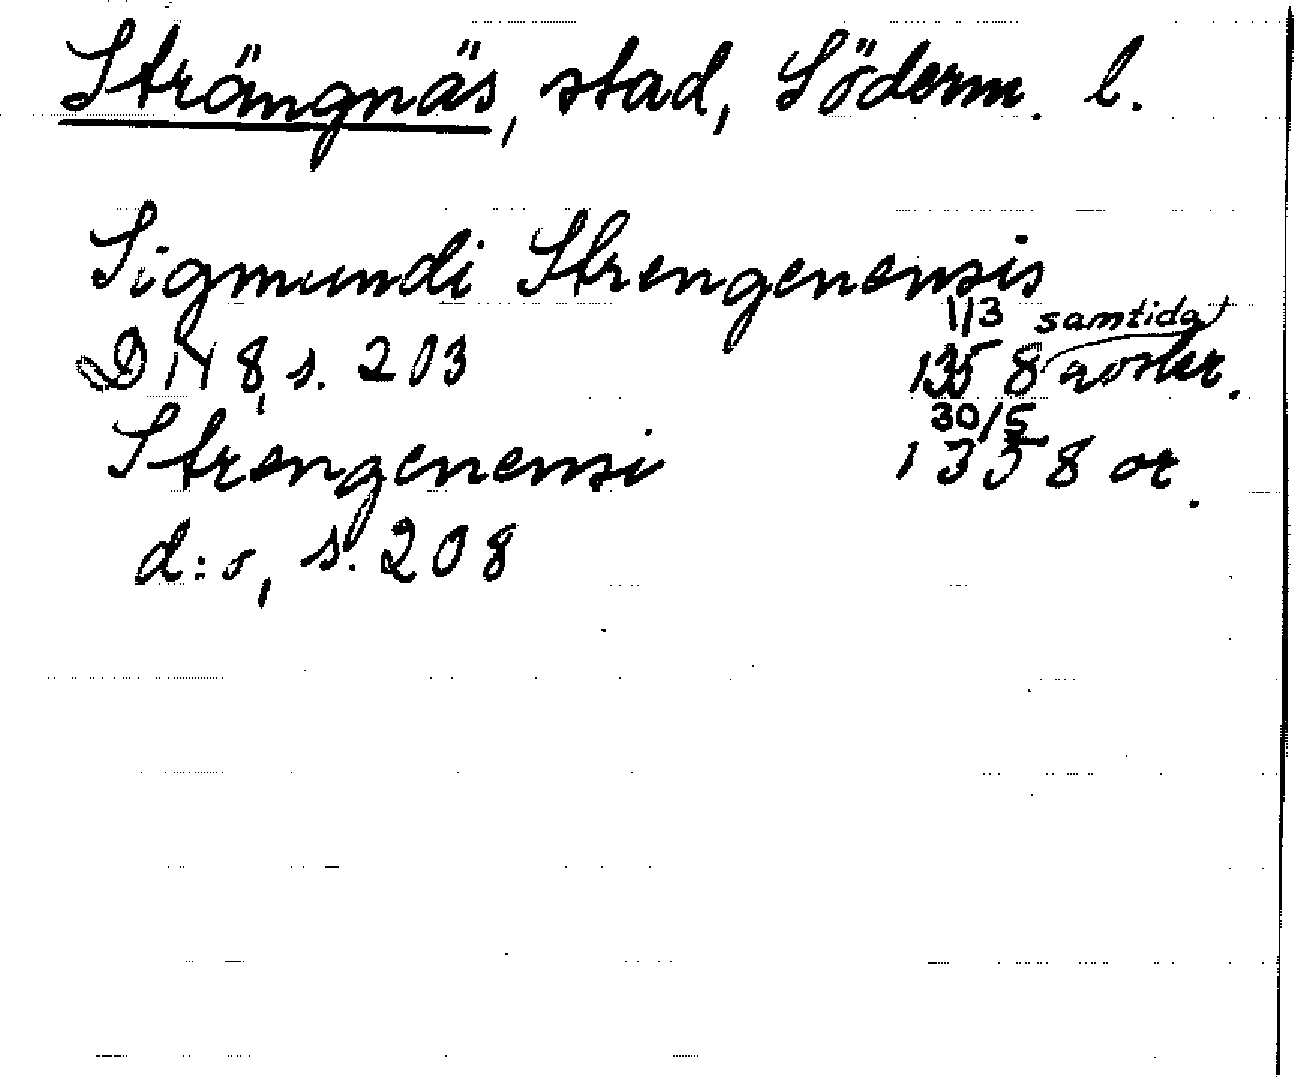 Strängnäs, stad, Söderm. l.
Sigmundi Strengenensis
D IV 8, s. 203 1/3 1358 samtida avskr.
Strengenensi 30/5 1358 or.
d:o, s. 208